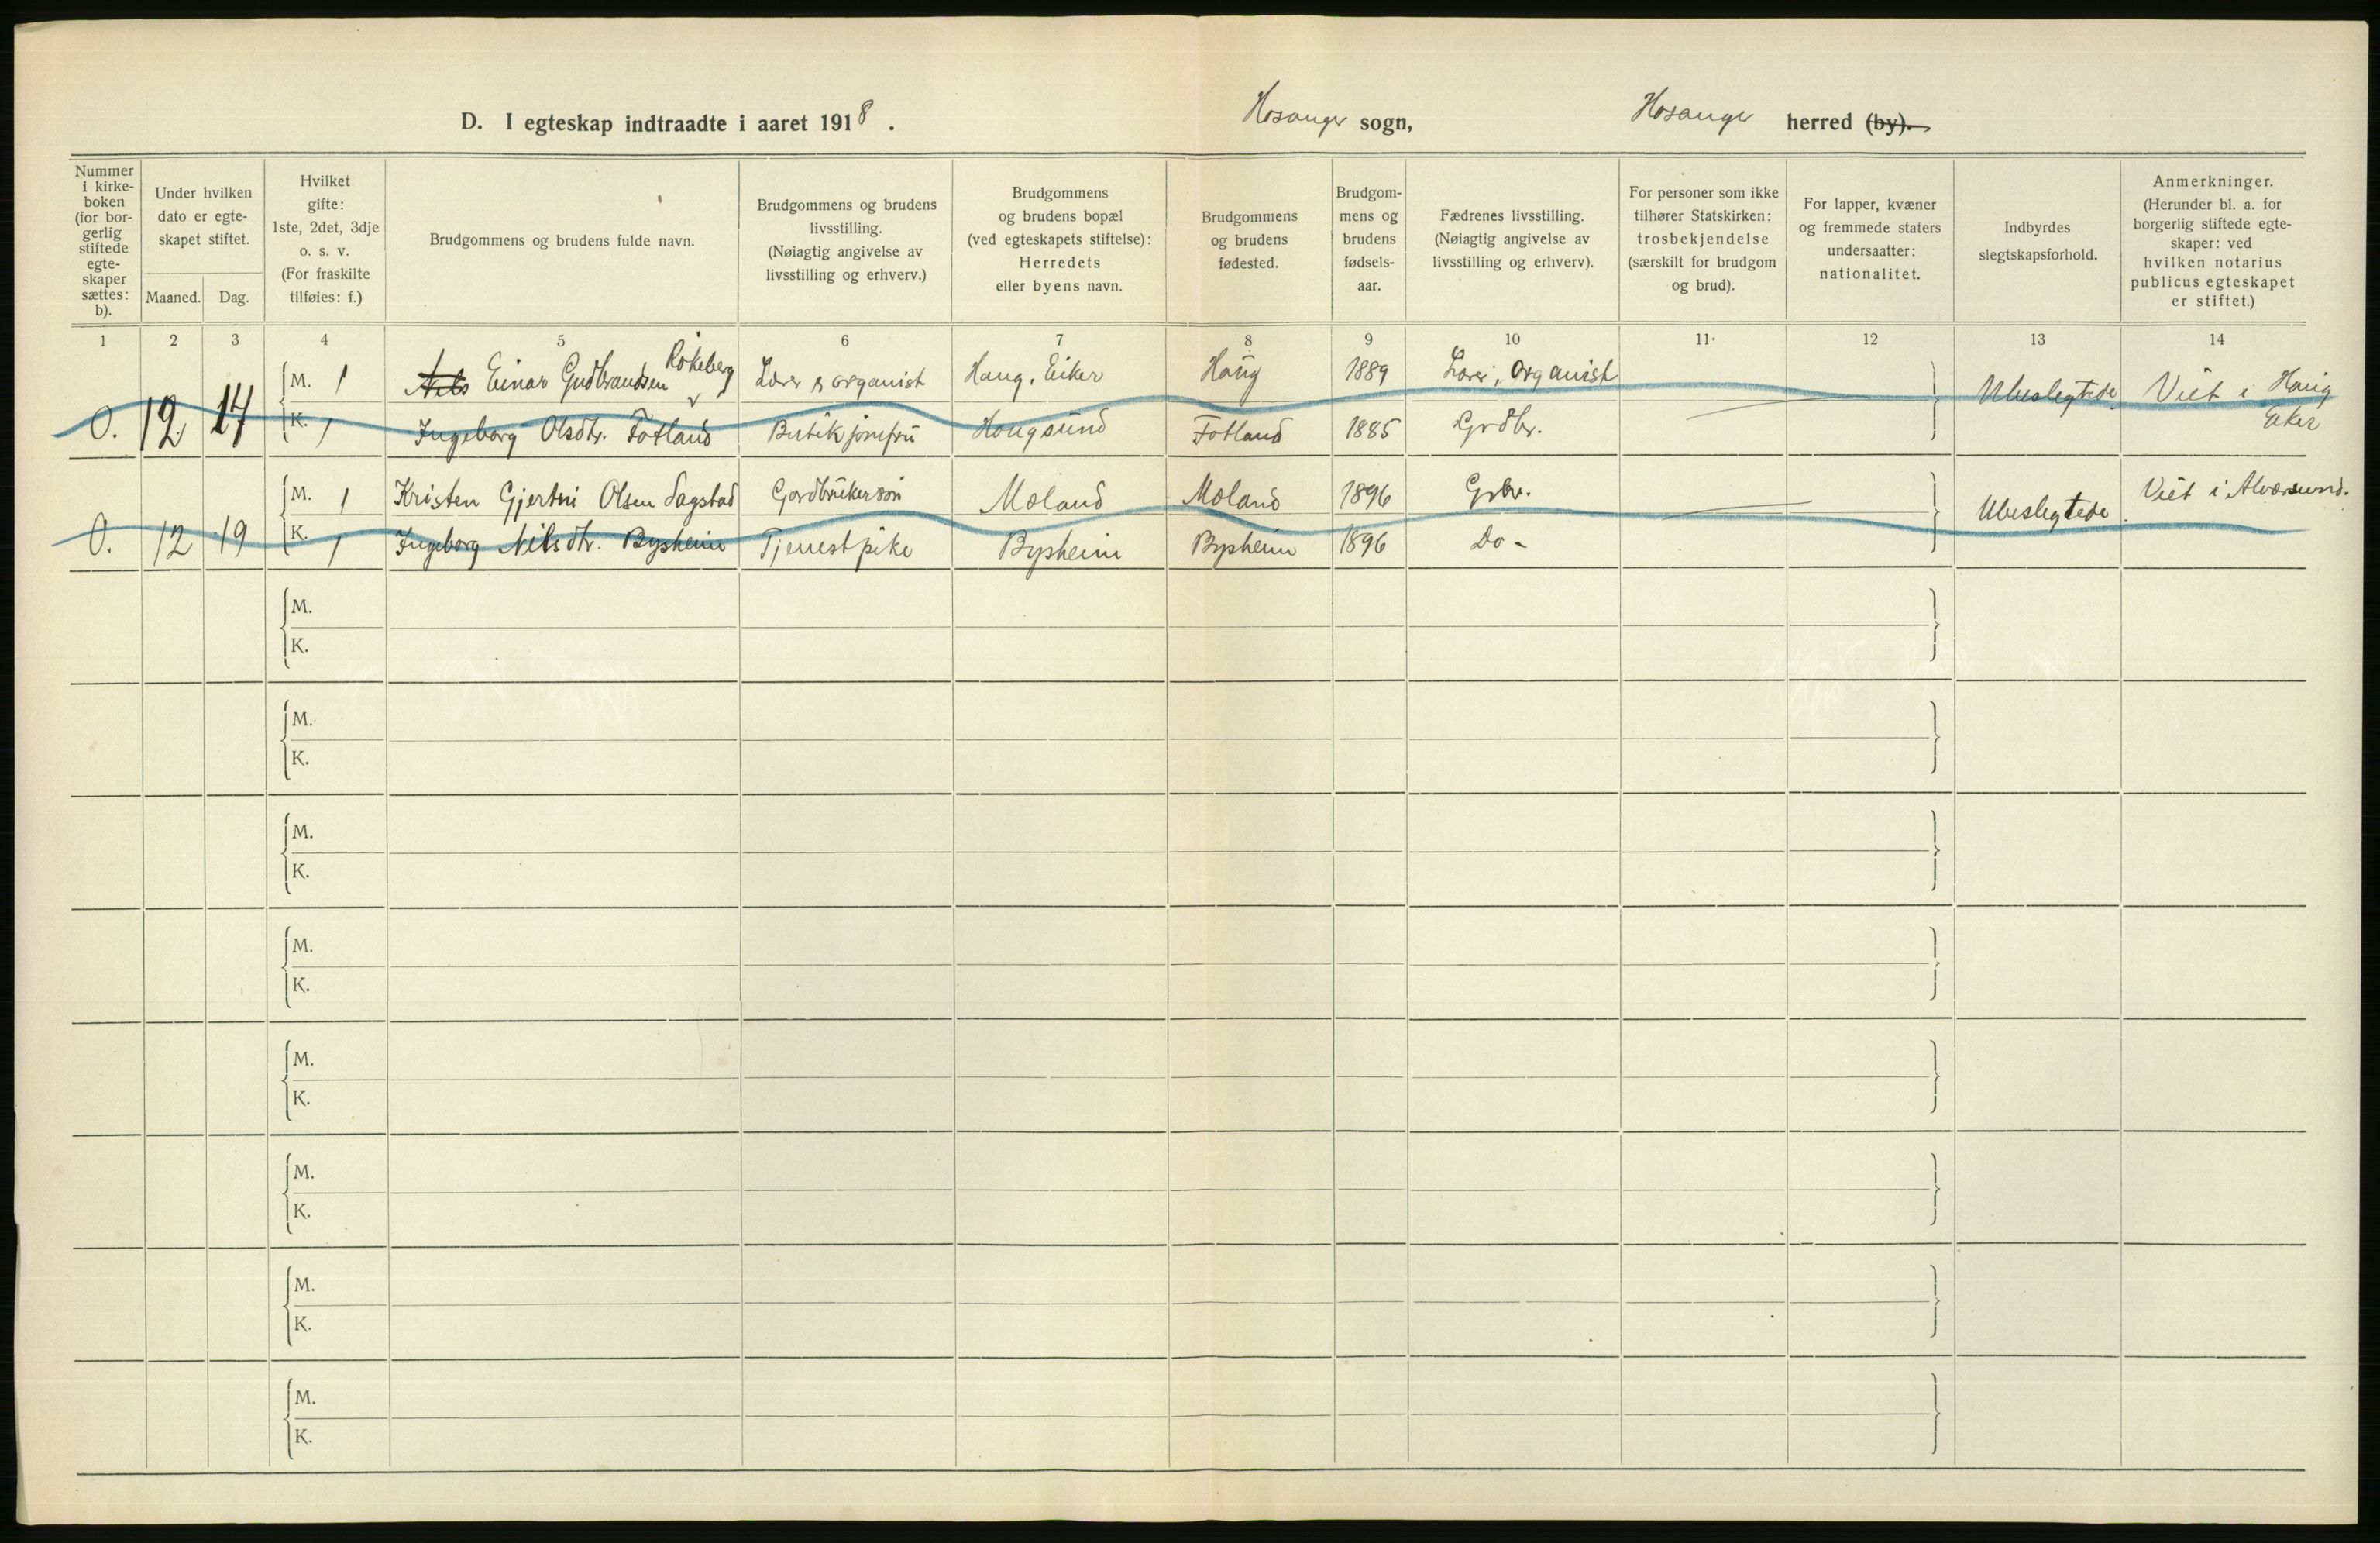 D. I egteskap indtraadte i aaret 1918.
Hosanger sogn,
Hosanger herred (by).
Nummer
i kirke-
boken
(for bor-
gerlig
stiftede
egte-
skaper
sættes:
b).
Under hvilken
dato er egte-
skapet stiftet.
Maaned. Dag.
Hvilket
gifte:
1ste, 2det, 3dje
o. s. v.
(For fraskilte
tilføies: f.)
Brudgommens og brudens fulde navn.
Brudgommens og brudens
livsstilling.
(Nøiagtig angivelse av
livsstilling og erhverv.)
Brudgommens
og brudens bopæl
(ved egteskapets stiftelse):
Herredets
eller byens navn.
Brudgommens
og brudens
fødested.
Brudgom-
mens og
brudens
fødsels-
aar.
Fædrenes livsstilling.
(Nøiagtig angivelse av
livsstilling og erhverv).
For personer som ikke
tilhører Statskirken:
trosbekjendelse
(særskilt for brudgom
og brud).
For lapper, kvæner
og fremmede staters
undersaatter:
nationalitet.
Indbyrdes
slegtskapsforhold.
Anmerkninger.
(Herunder bl. a. for
borgerlig stiftede egte-
skaper: ved
hvilken notarius
publicus egteskapet
er stiftet.)
1 2 3 4 5 6 7 8 9 10 11 12 13 14
M. 1 Nils Einar Gudbrandsen Rokeberg Lærer & organist Haug, Eiker Haug 1889 Lærer, organist
O. 12. 14 Ubeslegtede Viet i Haug
Eker
K. 1 Ingeborg Olsdtr. Fotland Butikjomfru Hougsund Fotland 1885 Grdbr.
M. 1 Kristen Gjertini Olsen Sagstad Gardbrukersøn Moland Moland 1896 Grbr.
O. 12 19 Ubeslegtede. Viet i Alværsund.
K. 1 Ingeborg Nilsdtr. Bysheim Tjenestpike Bysheim Bysheim 1896 Do -
M.
K.
M.
K.
M.
K.
M.
K.
M.
K.
M.
K.
M.
K.
M.
K.